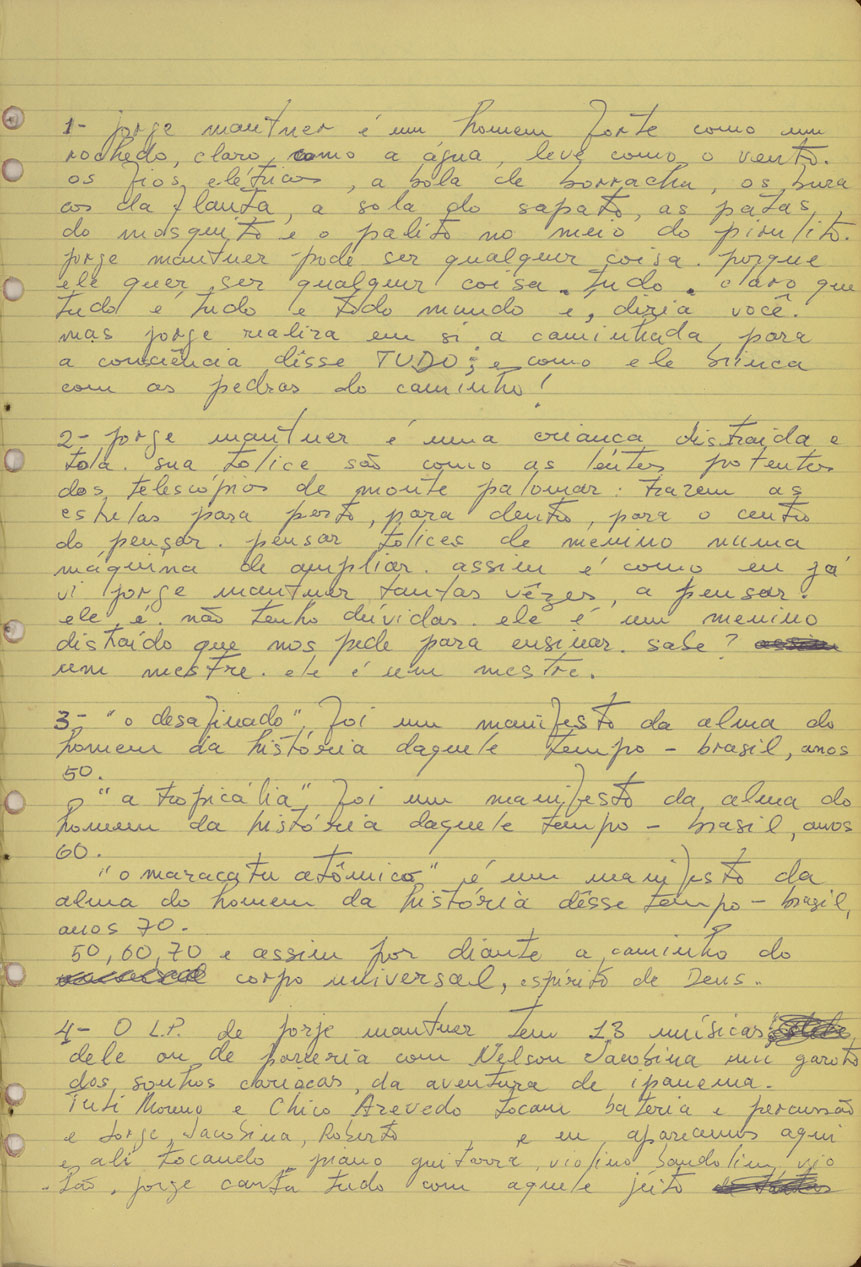 1- jorge mautner é um homem forte como um
rochedo, claro, como a água, leve como o vento.
os fios elétricos, a bola de borracha, os bura
cos da flauta, a sola do sapato, as patas,
do mosquito e o palito no meio do pirulito.
jorge mautner pode ser qualquer coisa. porque
ele quer ser qualquer coisa. tudo. claro que
tudo é tudo e todo mundo é, diria você.
mas jorge realiza em si a caminhada para
a consciência dêsse TUDO; e como ele brinca
com as pedras do caminho!
2- jorge mautner é uma criança distraída e
tola. sua tolice são como as lentes potentes
dos telescópios de monte palomar: trazem as
estrelas para perto, para dentro, para o centro
do pensar. pensar tolices de menino numa
máquina de ampliar. assim é como eu já
vi jorge mautner tantas vêzes, a pensar.
ele é. não tenho dúvidas. ele é um menino
distraído que nos pede para ensinar. sabe?
um mestre. ele é um mestre.
3- "o desafinado" foi um manifesto da alma do
homem da história daquele tempo - brasil, anos
50.
"a tropicália" foi um manifesto da alma do
homem da história daquele tempo - brasil, anos
60.
"o maracatu atômico" é um manifesto da
alma do homem da história dêsse tempo - brasil,
anos 70.
50, 60, 70 e assim por diante a caminho do
corpo universal, espírito de Deus.
4- O L.P. de jorje mautner tem 13 músicas
dele ou de parceria com Nelson Jacobina um garoto
dos sonhos cariocas, da aventura de ipanema.
Tuti Moreno e Chico Azevedo tocam bateria e percussão
e Jorge, Jacobina, Roberto, e eu aparecemos aqui
e ali tocando piano guitarra, violino, bandolim, vio
lão. jorge canta tudo com aquele jeito